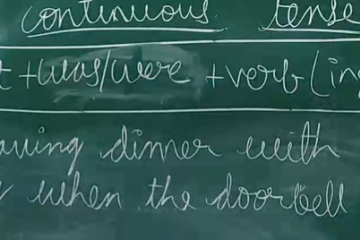 continuous tense
t + was/were + verb (in
aving dinner with
when the doorbell